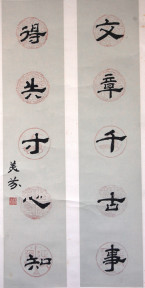 文章千古事
得失寸心知
美芬